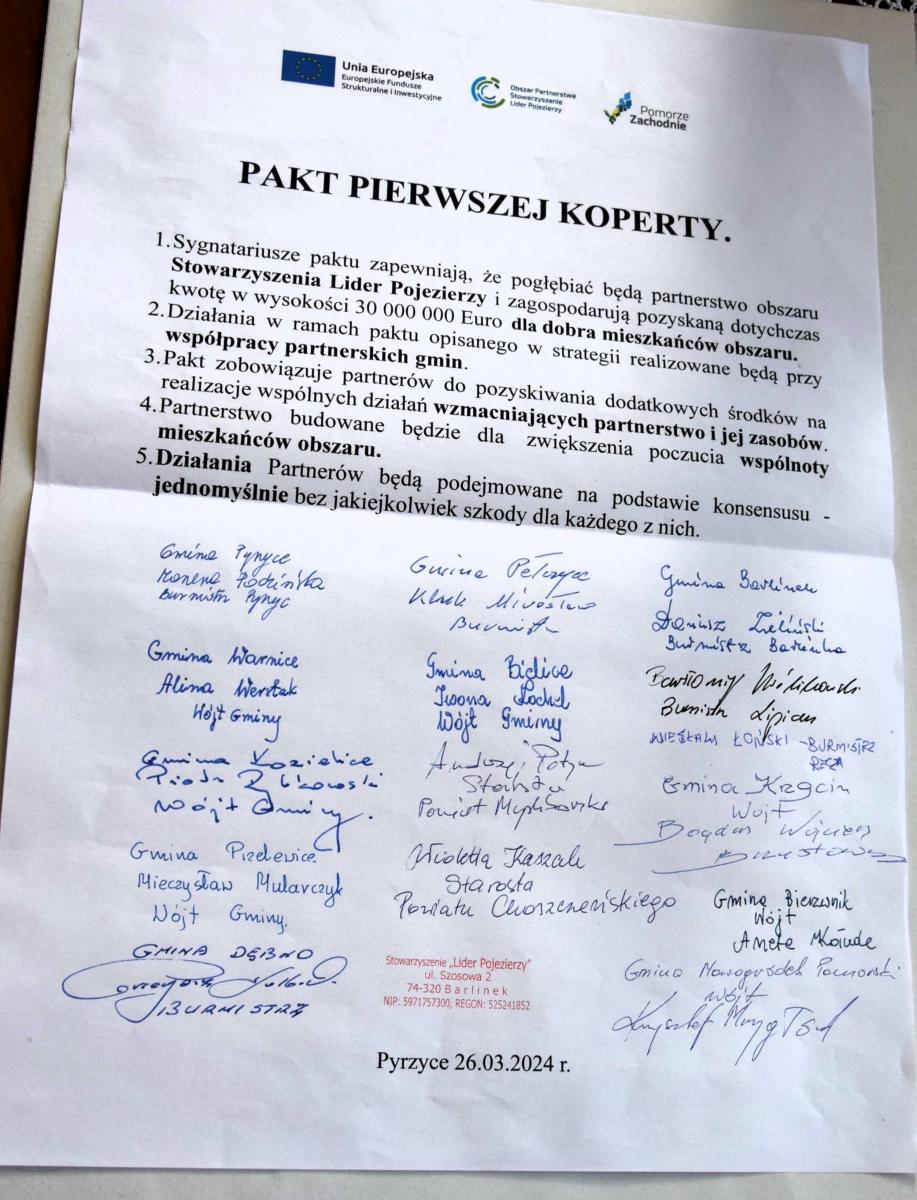 Unia Europejska
Europejskie Fundusze
Strukturalne i Inwestycyjne
Obszar Partnerstwa
Stowarzyszenie
Lider Pojezierzy
Pomorze
Zachodnie
PAKT PIERWSZEJ KOPERTY.
1. Sygnatariusze paktu zapewniają, że pogłębiać będą partnerstwo obszaru
Stowarzyszenia Lider Pojezierzy i zagospodarują pozyskaną dotychczas
kwotę w wysokości 30 000 000 Euro dla dobra mieszkańców obszaru.
2. Działania w ramach paktu opisanego w strategii realizowane będą przy
współpracy partnerskich gmin.
3. Pakt zobowiązuje partnerów do pozyskiwania dodatkowych środków na
realizacje wspólnych działań wzmacniających partnerstwo i jej zasobów.
4. Partnerstwo budowane będzie dla zwiększenia poczucia wspólnoty
mieszkańców obszaru.
5. Działania Partnerów będą podejmowane na podstawie konsensusu -
jednomyślnie bez jakiejkolwiek szkody dla każdego z nich.
Gmina
Burmistrz
Gmina Warnice
Alina
Wójt Gminy
Gmina Kozielice
Piotr
Wójt Gminy.
Gmina Przelewice
Mieczysław Mularczyk
Wójt Gminy
GMINA DĘBNO
BURMISTRZ
Gmina Pełczyce
Kluk Mirosław
Burmistrz
Gmina Bielice
Iwona
Wójt Gminy
Andrzej
Starosta
Powiat
Wioletta Kaszak
Starosta
Powiatu Choszczeńskiego
Stowarzyszenie „Lider Pojezierzy"
ul. Szosowa 2
74-320 Barlinek
NIP: 5971757300, REGON: 525241852
Gmina Barlinek
Dariusz Zieliński
Burmistrz Barlinka
Bartłomiej Królikowski
Burmistrz Lipian
WIESŁAW ŁOŃSKI - BURMISTRZ
RECZA
Gmina Krzęcin
Wójt
Bogdan
Gmina Bierzwnik
Wójt
Aneta
Gmina Nowogródek Pomorski
Wójt
Krzysztof
Pyrzyce 26.03.2024 r.